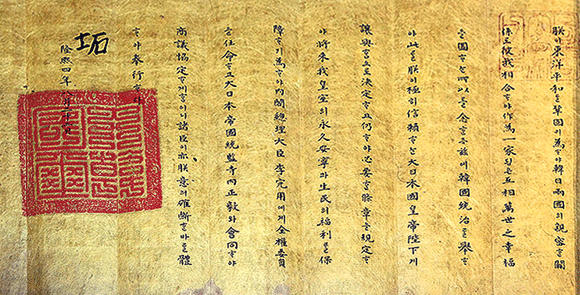 朕이東洋平和를鞏固히爲ᄒᆞ야韓日兩國의親密ᄒᆞᆫ關
係로彼我相合ᄒᆞ야作爲一家ᄂᆞᆫ互相萬世之幸福
을圖ᄒᆞᄂᆞᆫ所以를念ᄒᆞᆫ즉玆에韓國統治를擧ᄒᆞ
야此를朕이極히信賴ᄒᆞᄂᆞᆫ大日本國皇帝陛下게
讓與ᄒᆞ기로決定ᄒᆞ고仍ᄒᆞ야必要ᄒᆞᆫ條章을規定ᄒᆞ
야將來我皇室의永久安寧과生民의福利를保
障ᄒᆞ기爲ᄒᆞ야內閣總理大臣李完用에게全權委員
을任命ᄒᆞ고大日本帝國統監寺內正毅와會同ᄒᆞ야
商議協定케ᄒᆞ노니諸臣이亦朕意의確斷ᄒᆞᆫ바를體
ᄒᆞ야奉行ᄒᆞ라
隆熙四年
坧